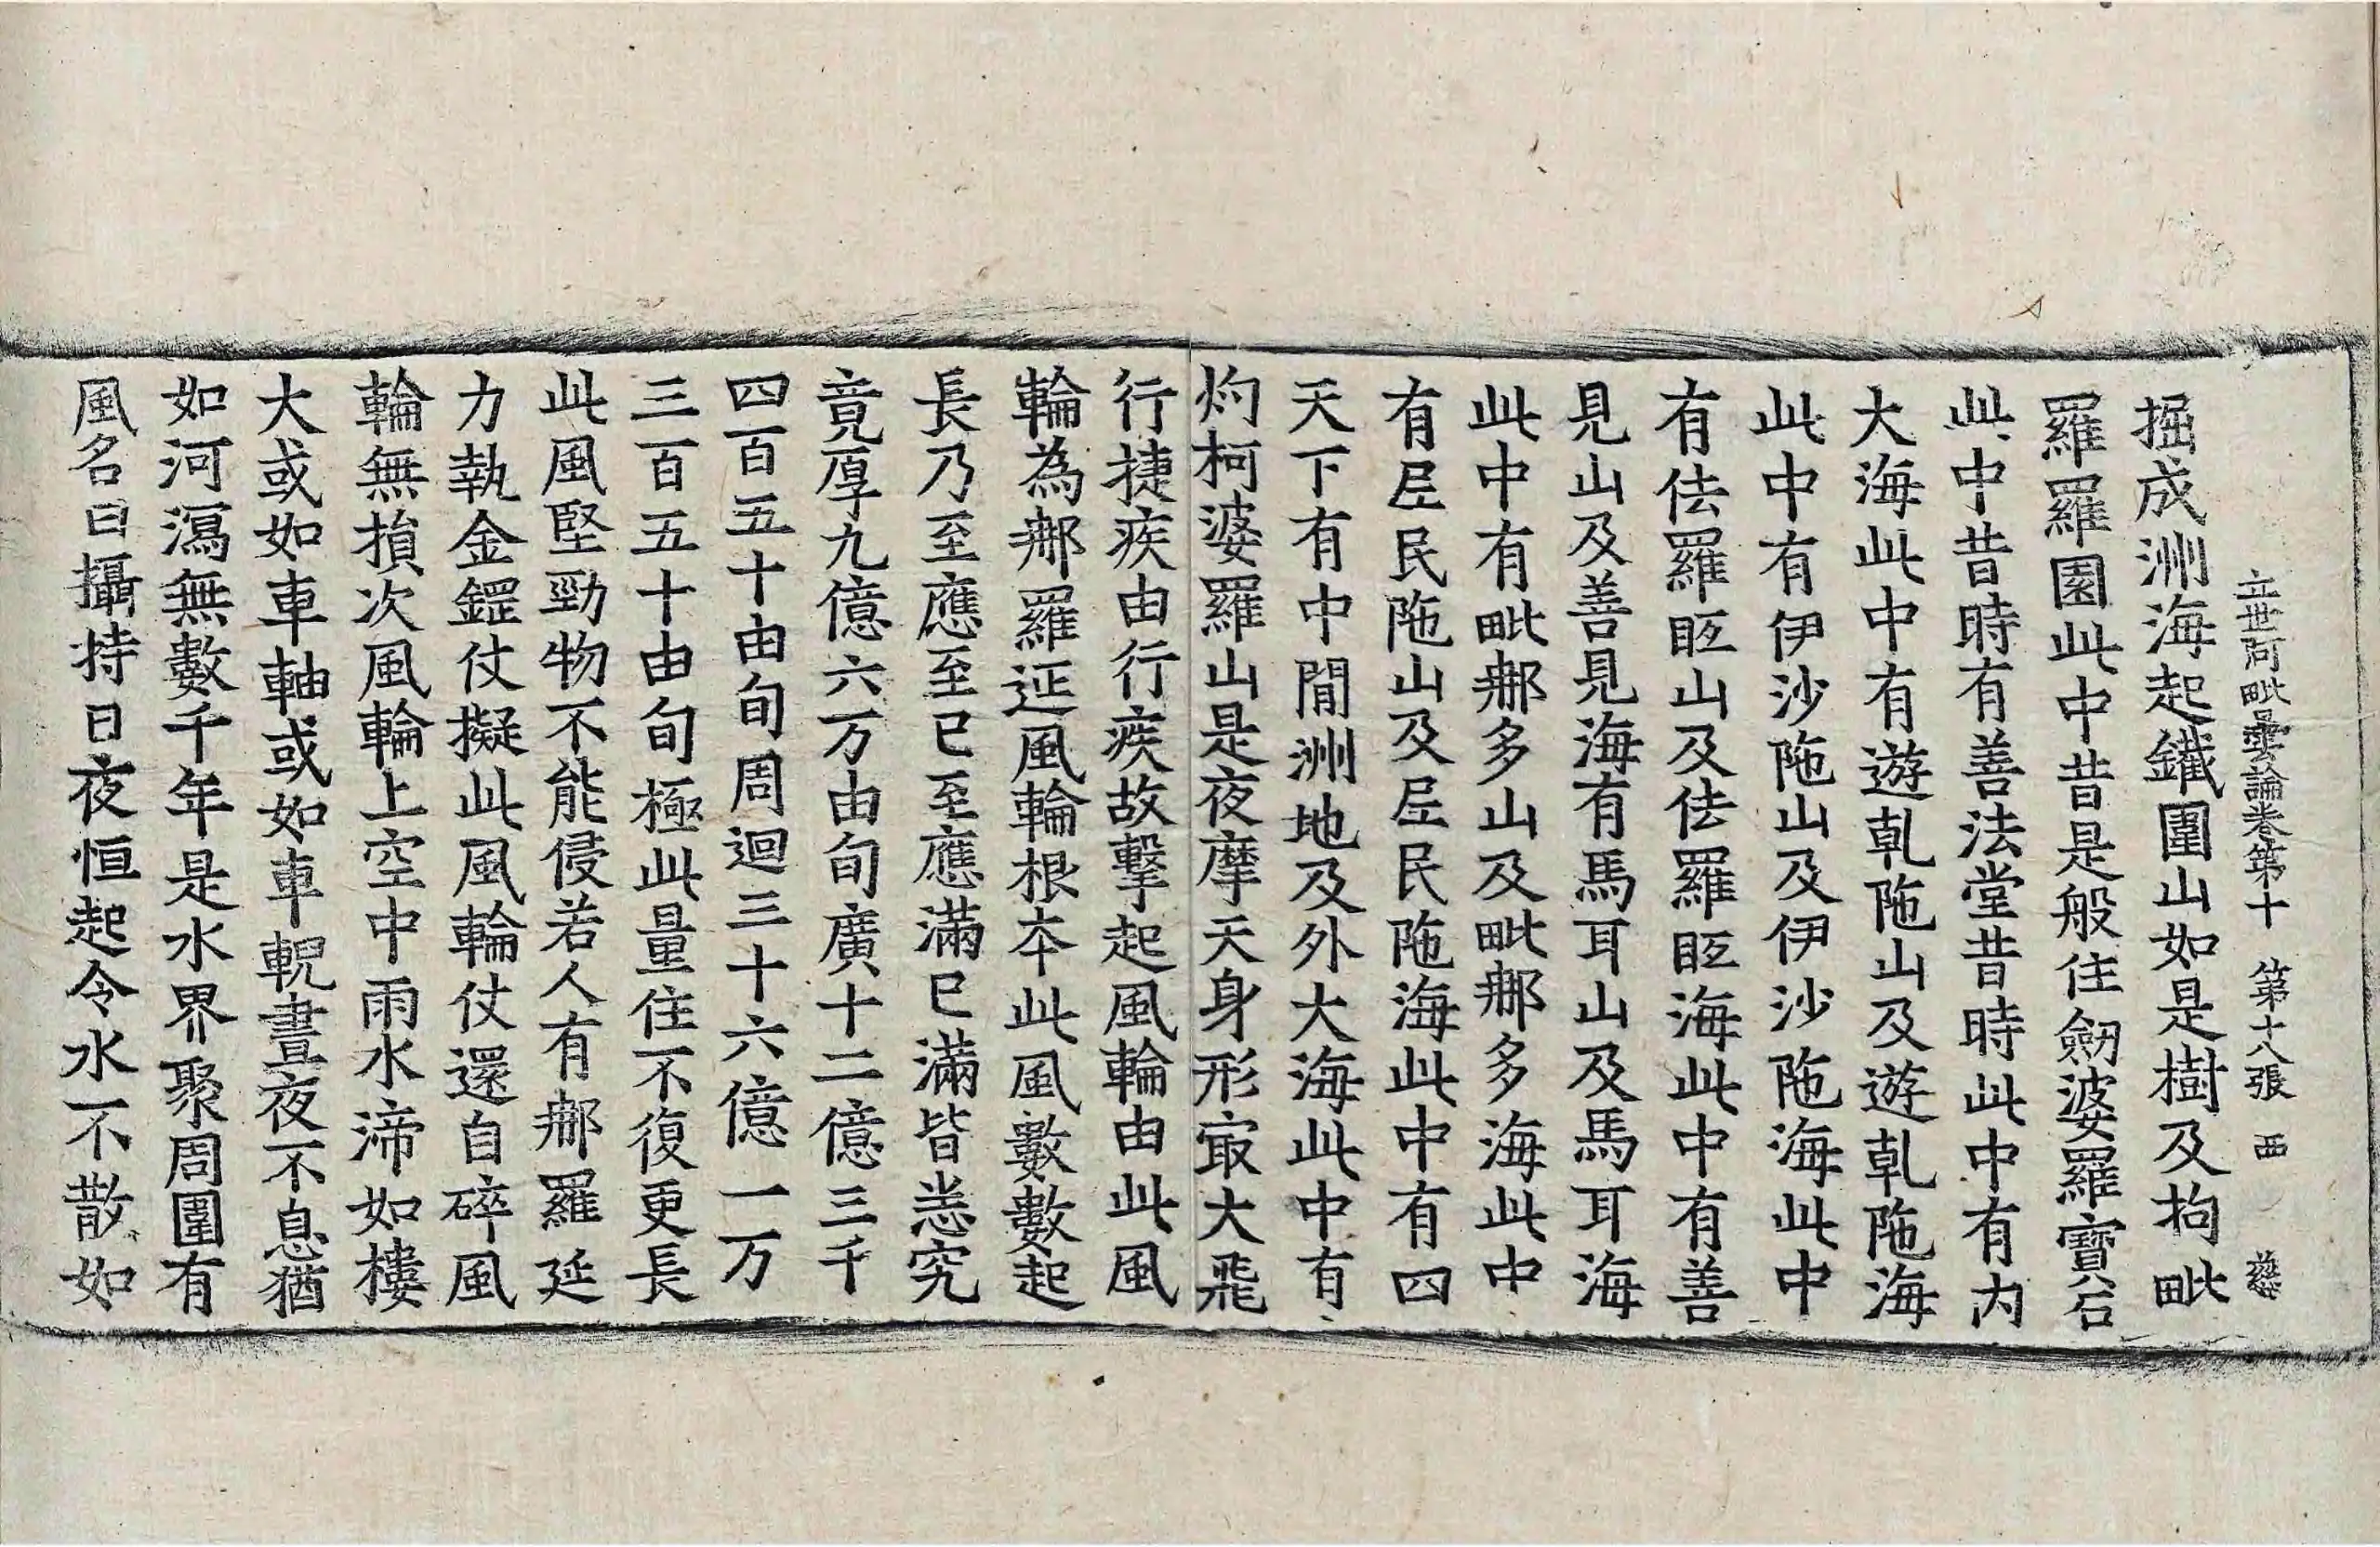 立世阿毗曇論卷第十　第十八張　西　慈
掘成洲海起鐵圍山如是樹及拘毗
羅羅園此中昔是般住劒婆羅寶石
此中昔時有善法堂昔時此中有内
大海此中有遊乹陁山及遊乹陁海
此中有伊沙陁山及伊沙陁海此中
有佉羅眍山及佉羅眍海此中有善
見山及善見海有馬耳山及馬耳海
此中有毗郍多山及毗郍多海此中
有𡰱民陁山及𡰱民陁海此中有四
天下有中閒洲地及外大海此中有
灼柯婆羅山是夜摩天身形㝡大飛
行捷疾由行疾故擊起風輪由此風
輪為郍羅延風輪根夲此風數數起
長乃至應至已至應滿已滿皆悉究
竟厚九億六万由旬廣十二億三千
四百五十由旬周迴三十六億一万
三百五十由旬極此量住不復更長
此風堅勁物不能侵若人有郍羅延
力執金䥯仗擬此風輪仗還自碎風
輪無損次風輪上空中雨水渧如樓
大或如車軸或如車輗晝夜不息猶
如河瀉無數千年是水界聚周圍有
風名曰攝持日夜恒起令水不散如